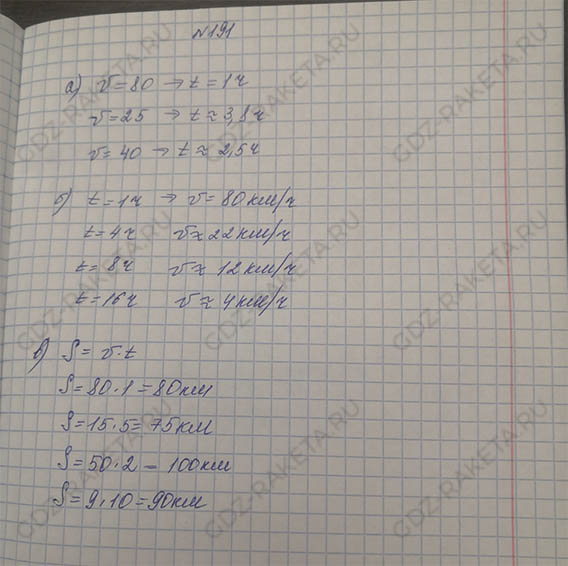 №191
а) v=80 → t=1ч
v=25 → t≈3,8ч
v=40 → t≈2,5ч
б) t=1ч → v=80км/ч
t=4ч v≈22км/ч
t=8ч v≈12км/ч
t=16ч v≈4км/ч
в) S=v·t
S=80·1=80км
S=15·5=75км
S=50·2=100км
S=9·10=90км
GDZ-RAKETA.RU
GDZ-RAKETA.RU
GDZ-RAKETA.RU
GDZ-RAKETA.RU
GDZ-RAKETA.RU
GDZ-RAKETA.RU
GDZ-RAKETA.RU
GDZ-RAKETA.RU
GDZ-RAKETA.RU